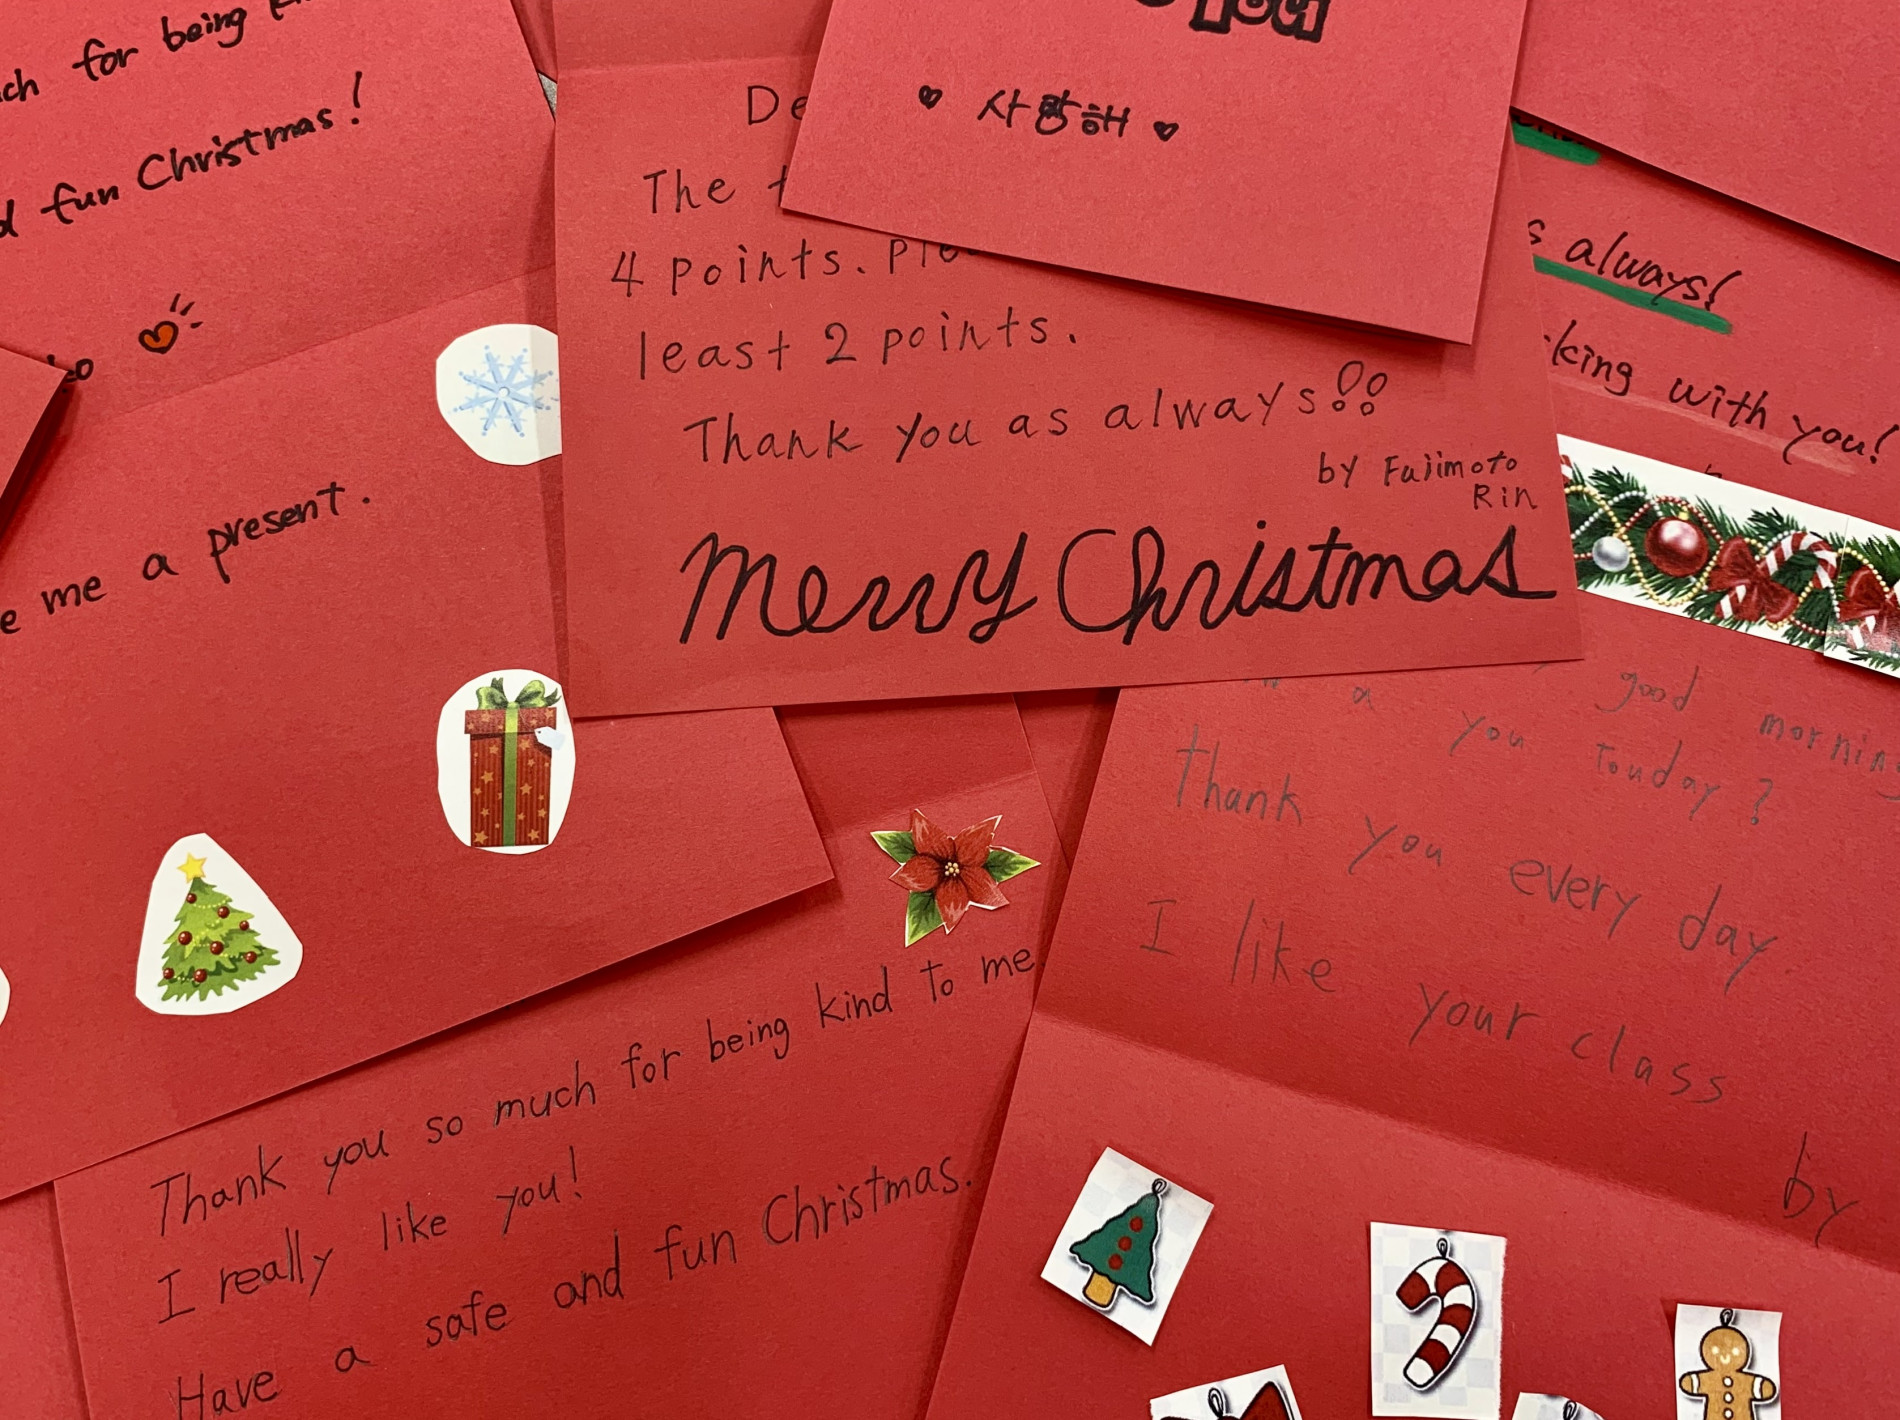 for being
fun Christmas!
me a present.
The
4 points.
least 2 points.
Thank you as always!!
by Fujimoto
Rin
Merry Christmas
You
♥ 사랑해 ♥
always!
with you!
a good morning
you Touday?
Thank you every day
I like your class
by
Thank you so much for being kind to me
I really like you!
Have a safe and fun Christmas.